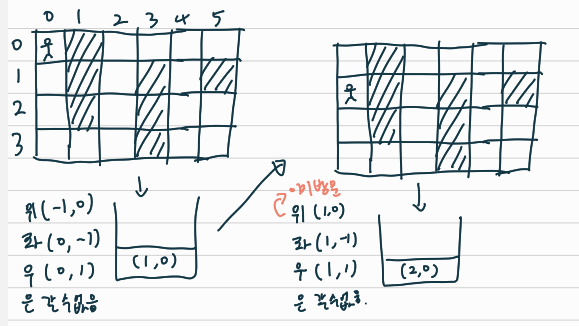 0 1 2 3 4 5
0
1
2
3
위(-1,0)
좌(0,-1)
우(0,1)
은 갈수없음
(1,0)
이미방문
위(1,0)
좌(1,-1)
우(1,1)
은 갈수없음.
(2,0)